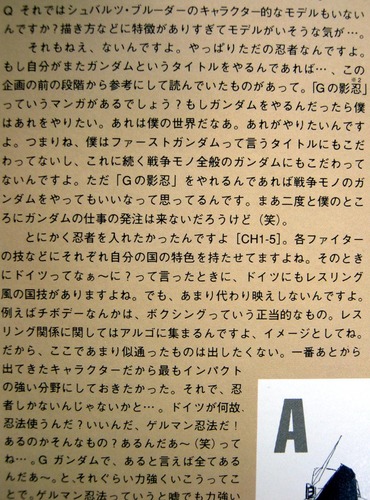 Q それではシュバルツ・ブルーダーのキャラクター的なモデルもいない
んですか？描き方などに特徴がありすぎてモデルがいそうな気が…。
それもねえ、ないんですよ。やっぱりただの忍者なんですよ。
もし自分がまたガンダムというタイトルをやるんであれば…、この
企画の前の段階から参考にして読んでいたものがあって。「Gの影忍」※2
っていうマンガがあるでしょう？もしガンダムをやるんだったら僕
はあれをやりたい。あれは僕の世界だなあ。あれがやりたいんです
よ。つまりね、僕はファーストガンダムって言うタイトルにもこだ
わってないし、これに続く戦争モノ全般のガンダムにもこだわって
ないんですよ。ただ「Gの影忍」をやれるんであれば戦争モノのガ
ンダムをやってもいいなって思ってるんです。まあ二度と僕のとこ
ろにガンダムの仕事の発注は来ないだろうけど（笑）。
とにかく忍者を入れたかったんですよ［CH1-5］。各ファイター
の技などにそれぞれ自分の国の特色を持たせてますよね。そのとき
にドイツってなぁ〜に？って言ったときに、ドイツにもレスリング
風の国技がありますよね。でも、あまり代わり映えしないんですよ。
例えばチボデーなんかは、ボクシングっていう正当的なもの。レス
リング関係に関してはアルゴに集まるんですよ、イメージとしてね。
だから、ここであまり似通ったものは出したくない。一番あとから
出てきたキャラクターだから最もインパクト
の強い分野にしておきたかった。それで、忍
者しかないんじゃないかと…。ドイツが何故、
忍法使うんだ？いいんだ、ゲルマン忍法だ！
あるのかそんなもの？あるんだあ〜（笑）って
ね…。Gガンダムで、あると言えば全てある
んだあ〜。と、それぐらい力強くいこうってこ
とで。ゲルマン忍法っていうと嘘でも力強い
A